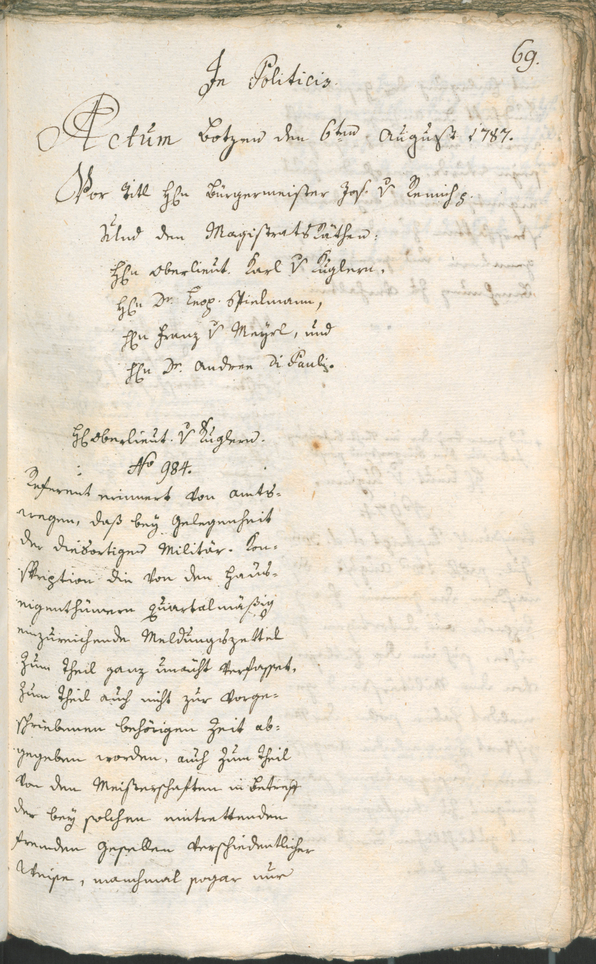 69.
In Politicis.
Actum Botzen den 6ten August 1787.
Vor Titl Hℓn Bürgermeister Jos. v Remich ꝛ.
Und den Magistrats Räthen:
Hℓn Oberlieut. Karl v Kuglern,
Hℓn Dr. Leop. Spielmann,
Hℓn Franz v Meyrl, und
Hℓn Dr. Andree Di Pauli.
H: Oberlieut. v Kuglern.
No 984.
Referent erinnert von amts-
wegen, daß bey Gelegenheit
der diesortigen Militär-Kon-
skription die von den Haus-
eigenthümern quartalmäßig
einzureichende Meldungszettel
zum Theil ganz unächt verfasset,
zum Theil auch nicht zur vorge-
schriebenen behörigen Zeit ab-
gegeben worden, auch zum Theil
von den Meisterschaften in Betreff
der bey solchen eintrettenden
fremden Gesellen verschiedentlicher
Weise, manchmal sogar nur